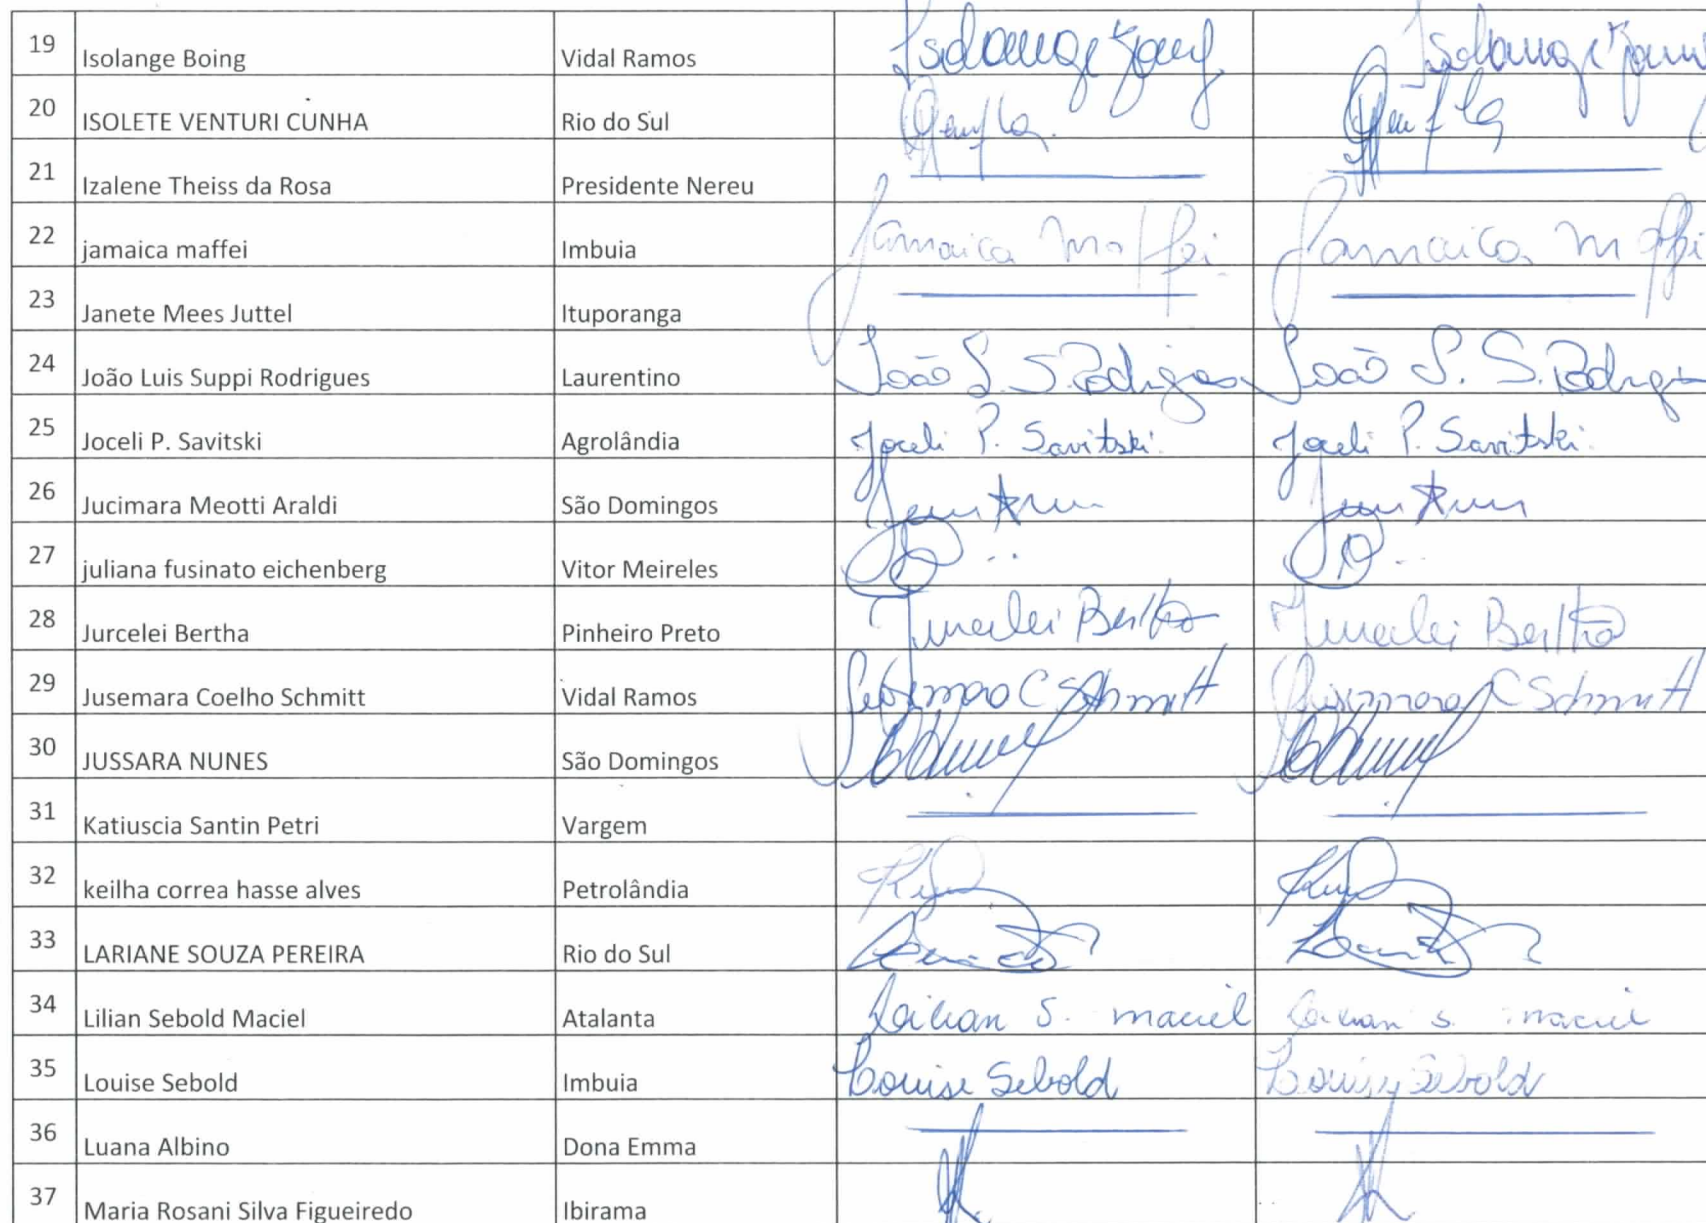 19 Isolange Boing Vidal Ramos
20 ISOLETE VENTURI CUNHA Rio do Sul
21 Izalene Theiss da Rosa Presidente Nereu
22 jamaica maffei Imbuia Jamaica Maffei Jamaica Maffei
23 Janete Mees Juttel Ituporanga
24 João Luis Suppi Rodrigues Laurentino João L. S. Rodrigues João L. S. Rodrigues
25 Joceli P. Savitski Agrolândia Joceli P. Savitski Joceli P. Savitski
26 Jucimara Meotti Araldi São Domingos
27 juliana fusinato eichenberg Vitor Meireles
28 Jurcelei Bertha Pinheiro Preto Jurcelei Bertha Jurcelei Bertha
29 Jusemara Coelho Schmitt Vidal Ramos Jusemara C Schmitt Jusemara C Schmitt
30 JUSSARA NUNES São Domingos
31 Katiuscia Santin Petri Vargem
32 keilha correa hasse alves Petrolândia
33 LARIANE SOUZA PEREIRA Rio do Sul
34 Lilian Sebold Maciel Atalanta Lilian S. maciel Lilian S. maciel
35 Louise Sebold Imbuia Louise Sebold Louise Sebold
36 Luana Albino Dona Emma
37 Maria Rosani Silva Figueiredo Ibirama